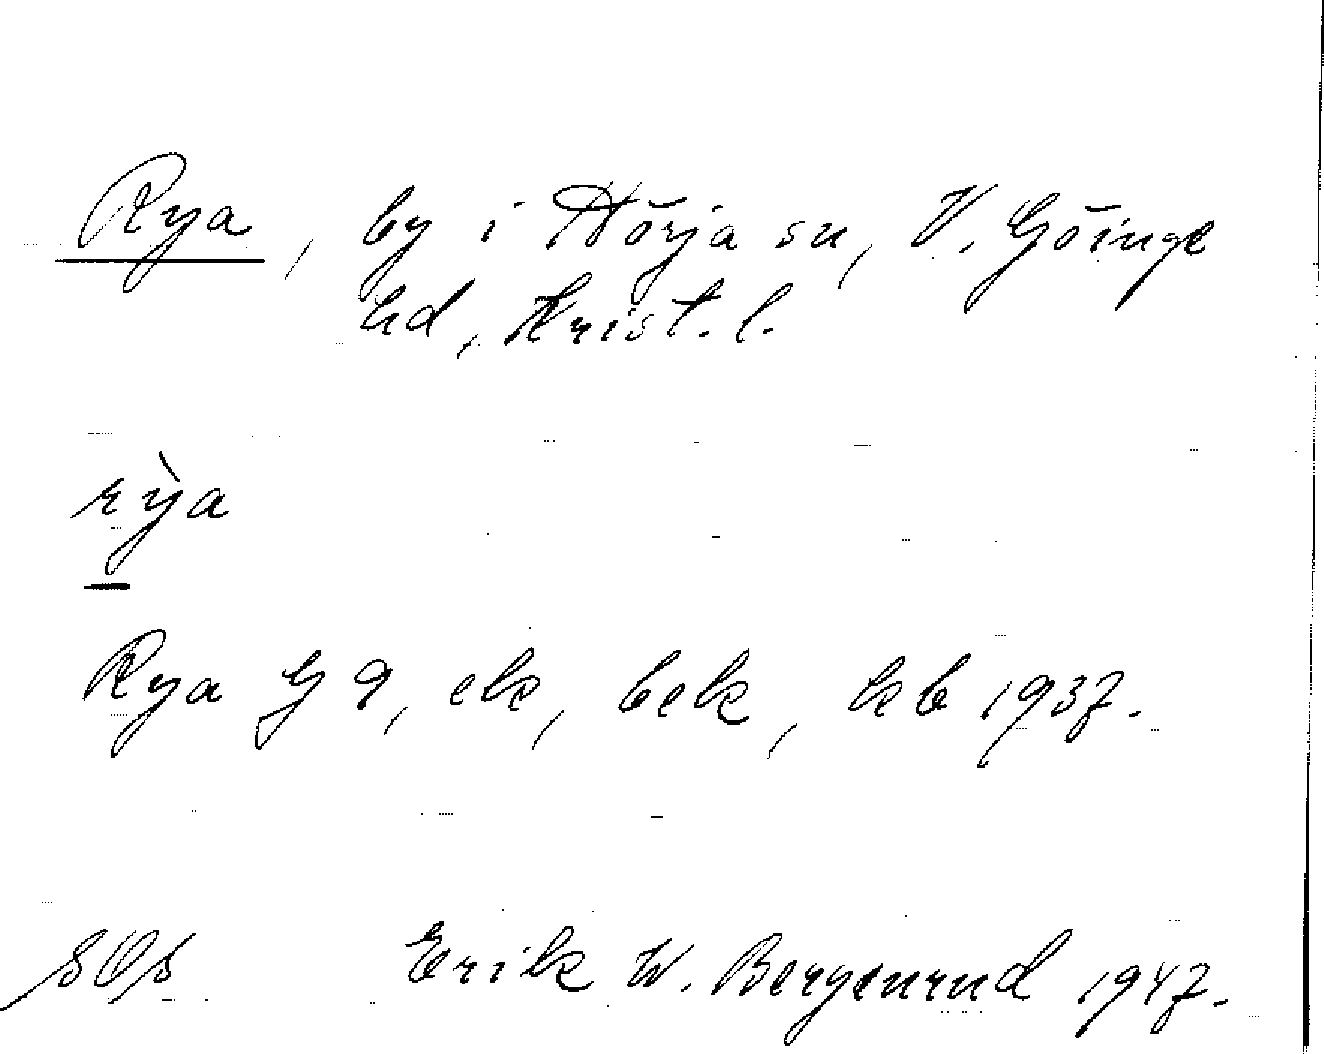 Rya, by i Hörja sn, V. Göinge
hd, Krist. l.
rỳa
Rya G 9, ek, bek, kb 1937.
SOS Erik W. Bergenrud 1947.